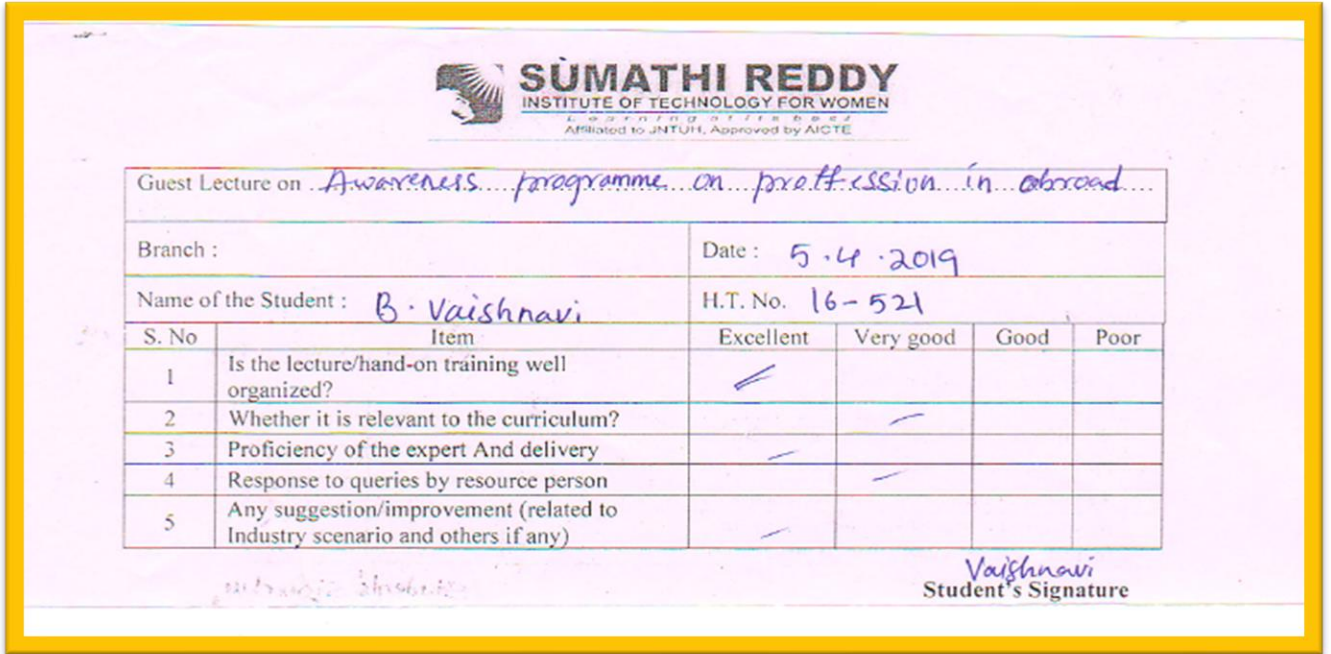 SUMATHI REDDY
INSTITUTE OF TECHNOLOGY FOR WOMEN
Affiliated to JNTUH, Approved by AICTE
Guest Lecture on Awareness programme on proffession in abroad
Branch :
Date : 5.4.2019
Name of the Student : B. Vaishnavi
H.T. No. 16-521
S. No Item Excellent Very good Good Poor
1 Is the lecture/hand-on training well
organized?
2 Whether it is relevant to the curriculum?
3 Proficiency of the expert And delivery
4 Response to queries by resource person
5 Any suggestion/improvement (related to
Industry scenario and others if any)
Vaishnavi
Student's Signature